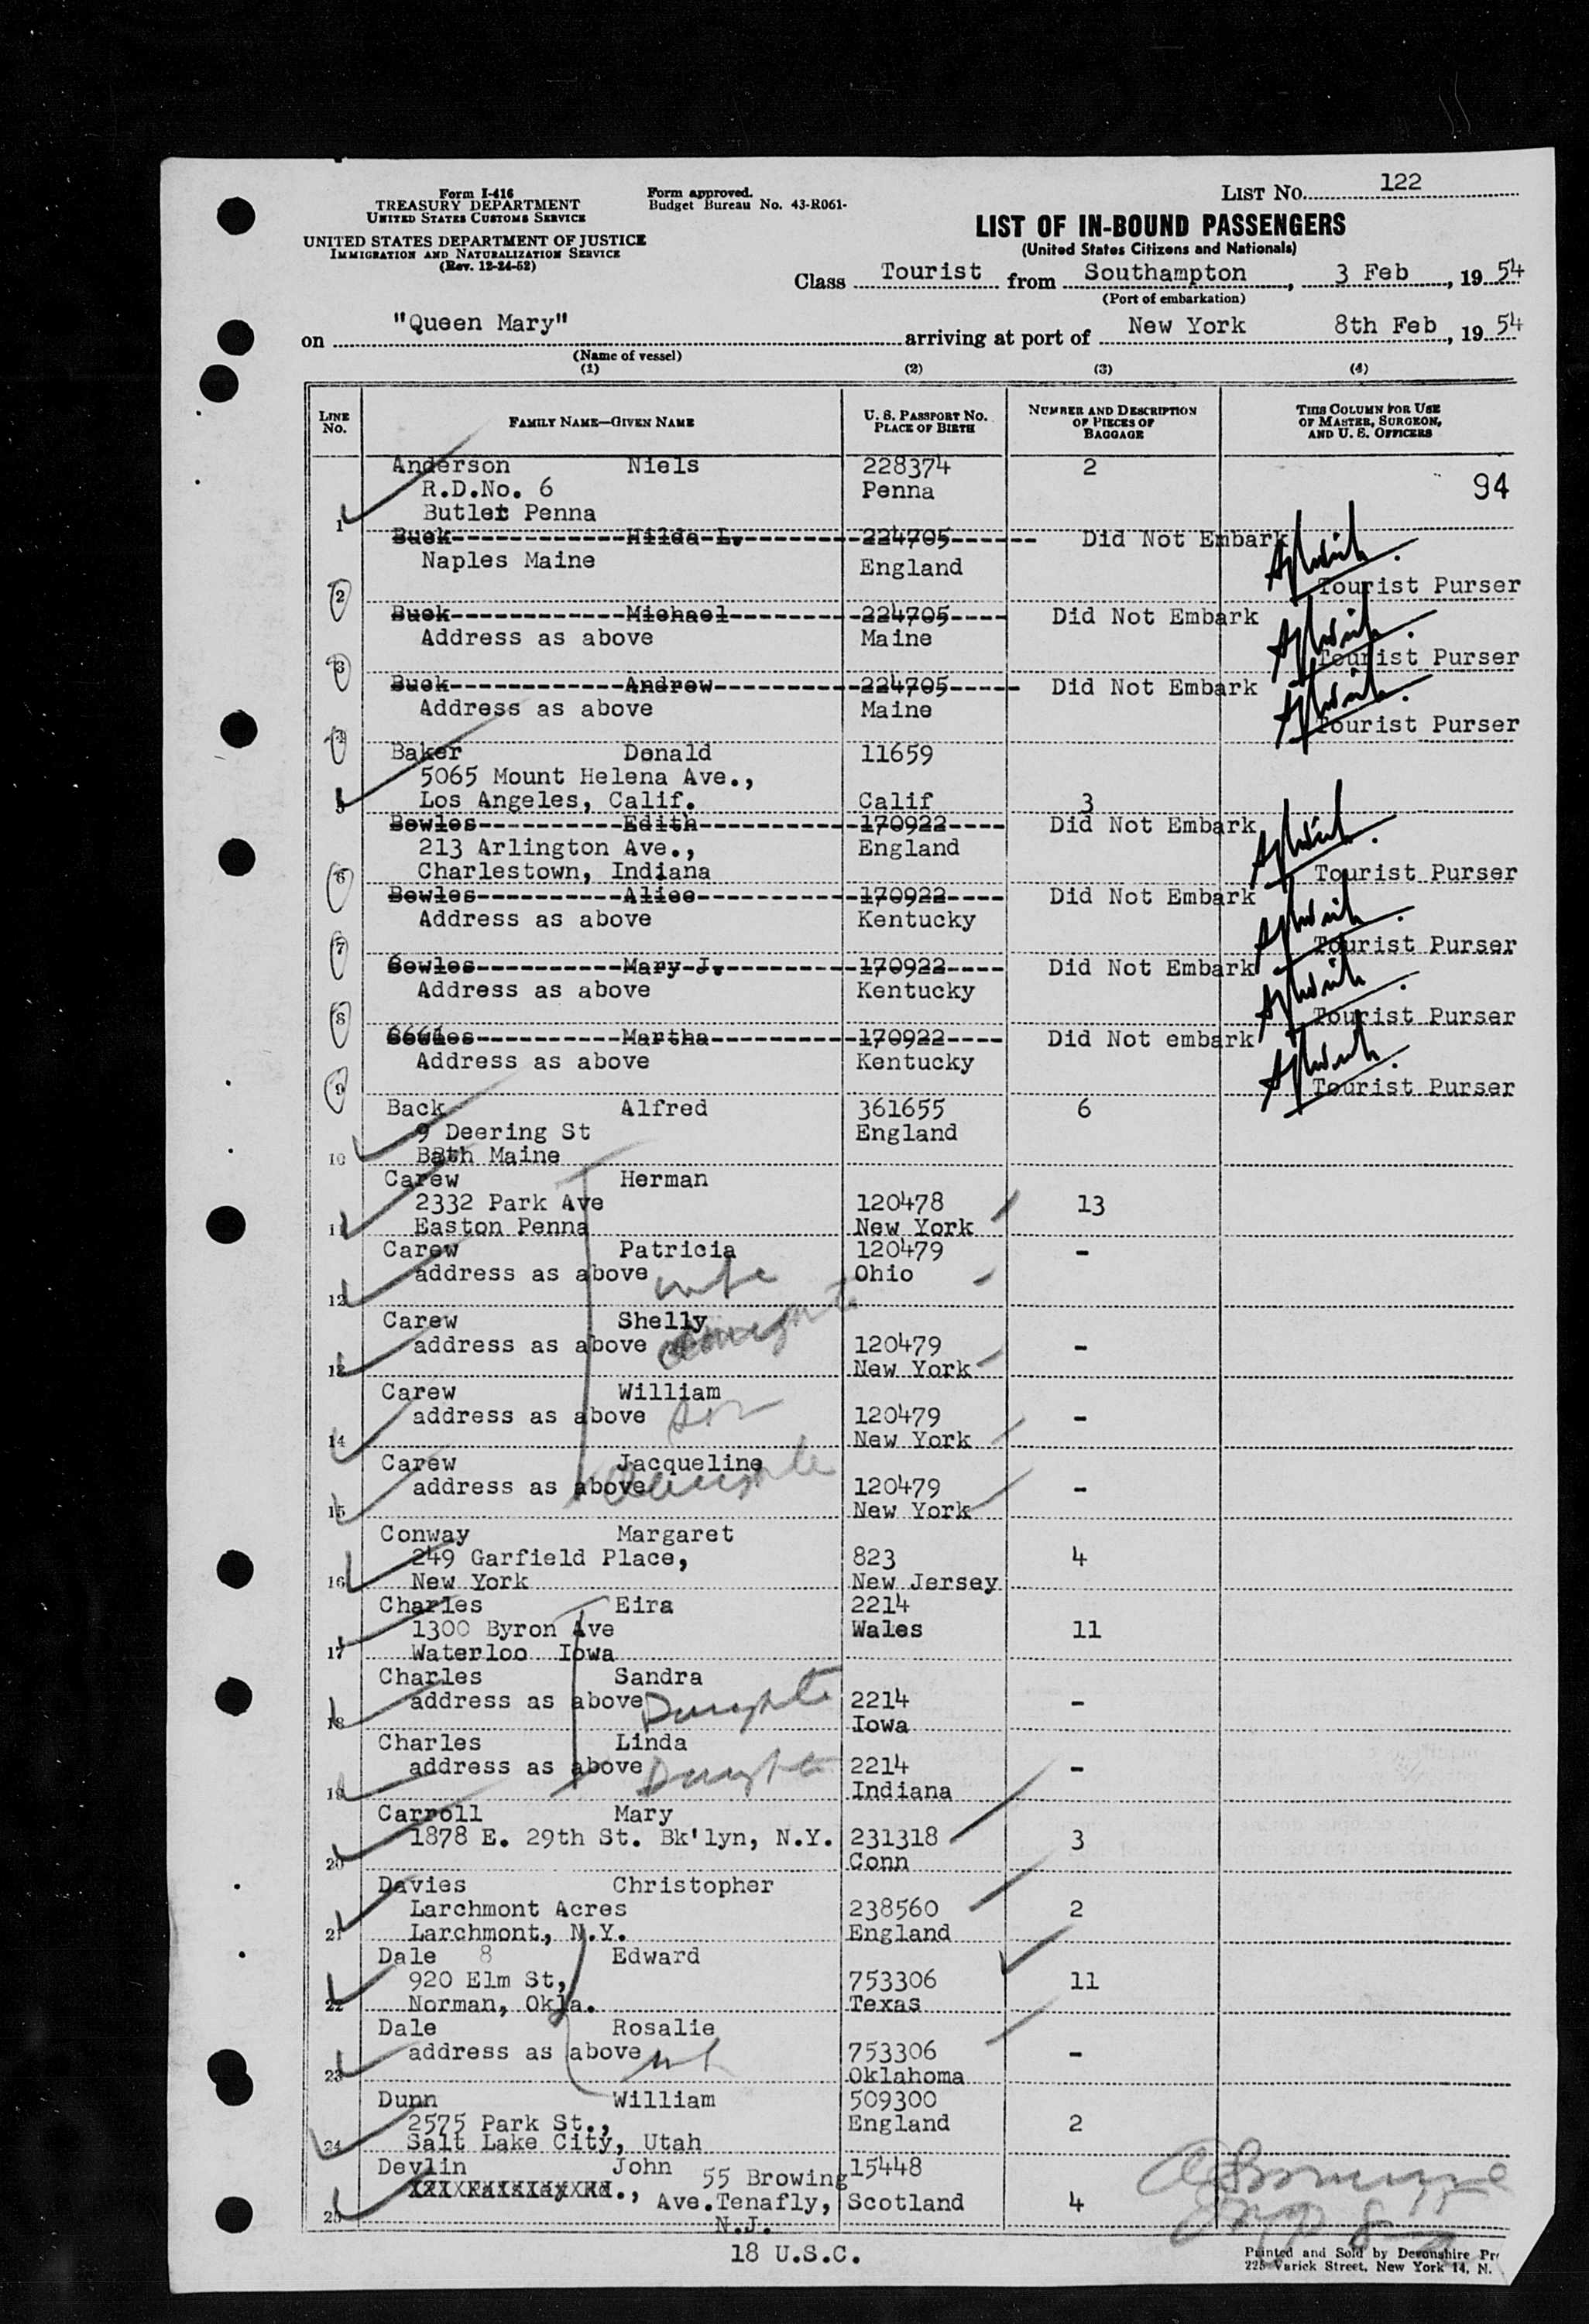 Form I-416
TREASURY DEPARTMENT
UNITED STATES CUSTOMS SERVICE
UNITED STATES DEPARTMENT OF JUSTICE
IMMIGRATION AND NATURALIZATION SERVICE
(Rev. 12-24-52)
Form approved.
Budget Bureau No. 43-R061-
LIST NO. 122
LIST OF IN-BOUND PASSENGERS
(United States Citizens and Nationals)
Class Tourist from Southampton, 3 Feb, 19 54
(Port of embarkation)
on "Queen Mary" arriving at port of New York 8th Feb, 19 54
(Name of vessel)
(1) (2) (3) (4)
LINE NO. FAMILY NAME—GIVEN NAME U. S. PASSPORT NO. PLACE OF BIRTH NUMBER AND DESCRIPTION OF PIECES OF BAGGAGE THIS COLUMN FOR USE OF MASTER, SURGEON, AND U. S. OFFICERS
Anderson Niels 228374 2
R.D.No. 6 Penna 94
1 Butler Penna
Buck Hilda L. 224705 Did Not Embark
Naples Maine England
2 Tourist Purser
Buck Michael 224705 Did Not Embark
Address as above Maine
3 Tourist Purser
Buck Andrew 224705 Did Not Embark
Address as above Maine
4 Tourist Purser
Baker Donald 11659
5065 Mount Helena Ave.,
5 Los Angeles, Calif. Calif 3
Bowles Edith 170922 Did Not Embark
213 Arlington Ave., England
6 Charlestown, Indiana Tourist Purser
Bowles Alice 170922 Did Not Embark
Address as above Kentucky
7 Tourist Purser
Bowles Mary J. 170922 Did Not Embark
Address as above Kentucky
8 Tourist Purser
Bowles Martha 170922 Did Not embark
Address as above Kentucky
9 Tourist Purser
Back Alfred 361655 6
9 Deering St England
10 Bath Maine
Carew Herman
2332 Park Ave 120478 13
11 Easton Penna New York
Carew Patricia 120479 -
address as above wife Ohio
12
Carew Shelly
address as above 120479 -
13 New York
Carew William
address as above son 120479 -
14 New York
Carew Jacqueline
address as above 120479 -
15 New York
Conway Margaret
249 Garfield Place, 823 4
16 New York New Jersey
Charles Eira 2214
1300 Byron Ave Wales 11
17 Waterloo Iowa
Charles Sandra
address as above Daughter 2214 -
18 Iowa
Charles Linda
address as above Daughter 2214 -
19 Indiana
Carroll Mary
1878 E. 29th St. Bk'lyn, N.Y. 231318 3
20 Conn
Davies Christopher
Larchmont Acres 238560 2
21 Larchmont, N.Y. England
Dale 8 Edward
920 Elm St, 753306 11
22 Norman, Okla. Texas
Dale Rosalie
address as above 753306 -
23 Oklahoma
Dunn William 509300
2575 Park St., England 2
24 Salt Lake City, Utah
Devlin John 55 Browing 15448
25 Ave.Tenafly, Scotland 4
N.J.
18 U.S.C.
Printed and Sold by Devonshire Pr
225 Varick Street, New York 14, N.